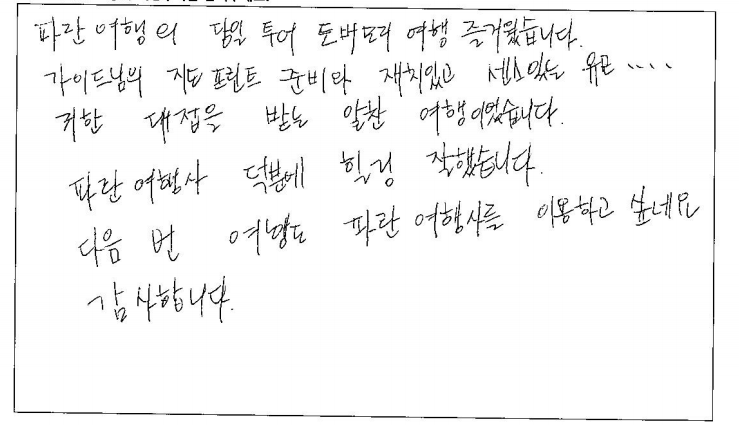 파란여행의 당일 투어 토버모리 여행 즐거웠습니다.
가이드님의 지도 프린트 준비와 재치있고 센스있는 유모....
귀한 대접을 받는 알찬 여행이었습니다.
파란여행사 덕분에 힐링 잘했습니다.
다음 번 여행도 파란여행사를 이용하고 싶네요
감사합니다.